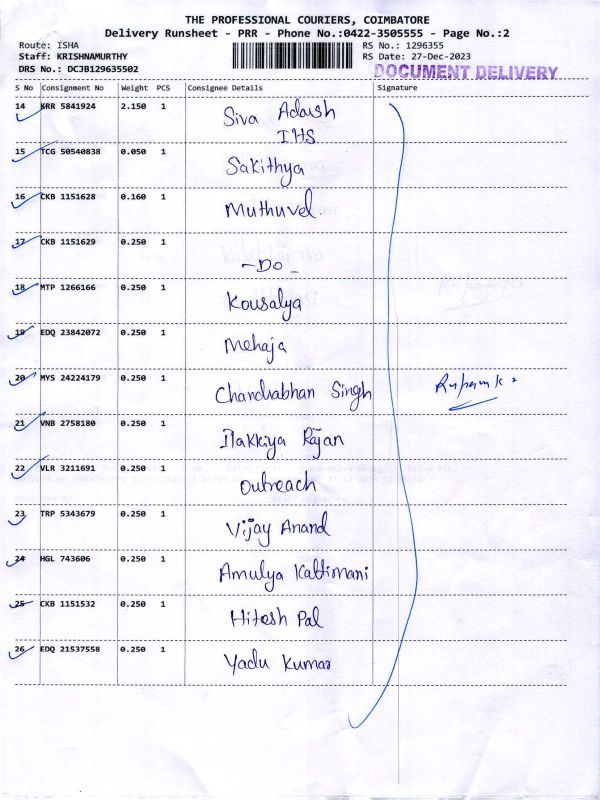 THE PROFESSIONAL COURIERS, COIMBATORE
Delivery Runsheet - PRR - Phone No.:0422-3505555 - Page No.:2
Route: ISHA
Staff: KRISHNAMURTHY
DRS No.: DCJB129635502
RS No.: 1296355
RS Date: 27-Dec-2023
DOCUMENT DELIVERY
S No Consignment No Weight PCS Consignee Details Signature
14 KRR 5841924 2.150 1 Siva Adarsh
IHS
15 TCG 50540838 0.050 1 Sakithya
16 CKB 1151628 0.160 1 Muthuvel.
17 CKB 1151629 0.250 1
-Do-
18 MTP 1266166 0.250 1 Kousalya
19 EDQ 23842072 0.250 1 Mehaja
20 MYS 24224179 0.250 1 Chandrabhan Singh
21 VNB 2758180 0.250 1 Ilakkiya Rajan
22 VLR 3211691 0.250 1 Outreach
23 TRP 5343679 0.250 1 Vijay Anand
24 HGL 743606 0.250 1 Amulya Kattimani
25 CKB 1151532 0.250 1 Hitesh Pal
26 EDQ 21537558 0.250 1 Yadu Kumar